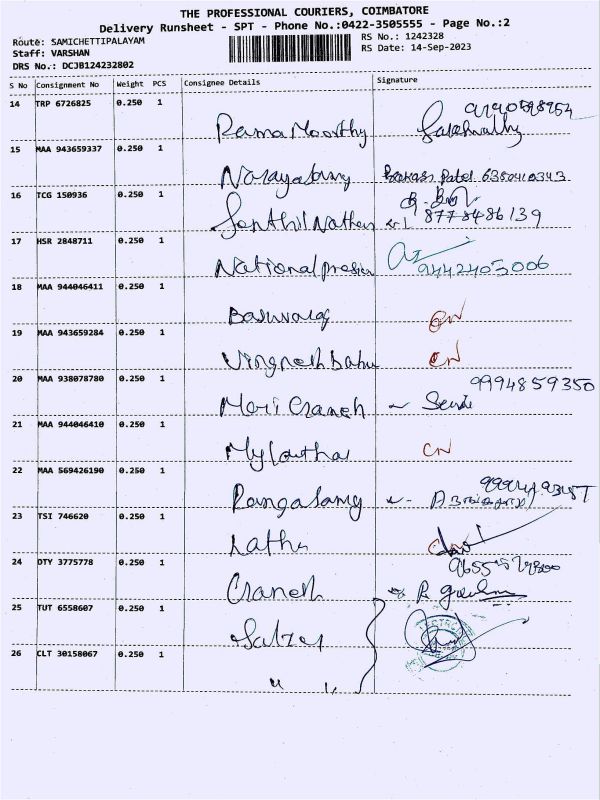 THE PROFESSIONAL COURIERS, COIMBATORE
Delivery Runsheet - SPT - Phone No.:0422-3505555 - Page No.:2
Route: SAMICHETTIPALAYAM
Staff: VARSHAN
DRS No.: DCJB124232802
RS No.: 1242328
RS Date: 14-Sep-2023
S No Consignment No Weight PCS Consignee Details Signature
14 TRP 6726825 0.250 1
Rama Moorthy
15 MAA 943659337 0.250 1
Narayasamy Patel 6380410343
16 TCG 150936 0.250 1
Senthil Nathan 8778486139
17 HSR 2848711 0.250 1
National 9442405006
18 MAA 944046411 0.250 1
CN
19 MAA 943659284 0.250 1
Vingnesh babu CN
20 MAA 938078780 0.250 1
9994859350
21 MAA 944046410 0.250 1
CN
22 MAA 569426190 0.250 1
Rangasamy
23 TSI 746620 0.250 1
Latha
24 DTY 3775778 0.250 1
Ganesh
25 TUT 6558607 0.250 1
Salzer
26 CLT 30158067 0.250 1
" "